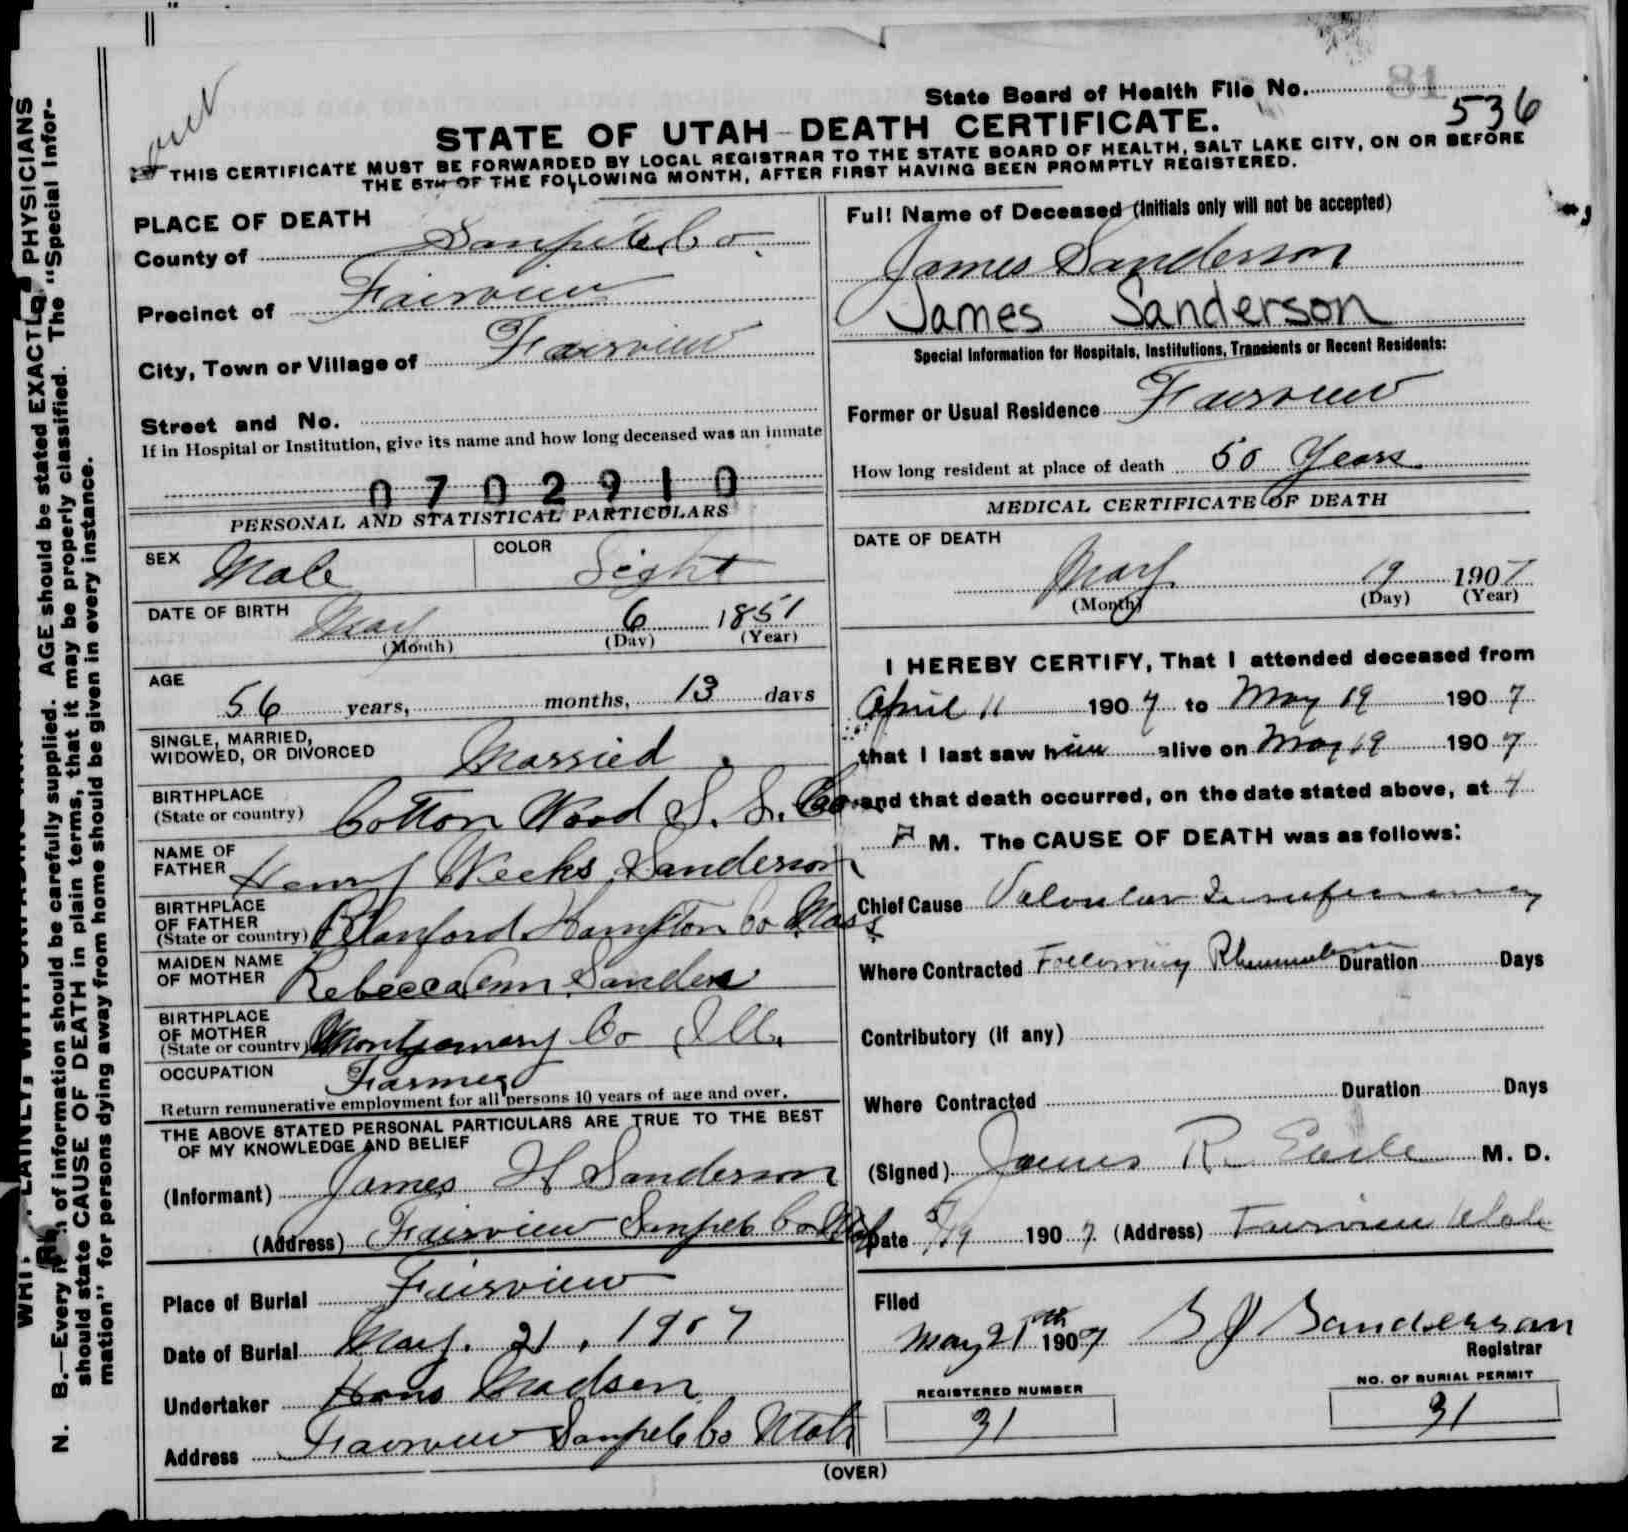 State Board of Health File No. 81
536
STATE OF UTAH—DEATH CERTIFICATE.
THIS CERTIFICATE MUST BE FORWARDED BY LOCAL REGISTRAR TO THE STATE BOARD OF HEALTH, SALT LAKE CITY, ON OR BEFORE
THE 5TH OF THE FOLLOWING MONTH, AFTER FIRST HAVING BEEN PROMPTLY REGISTERED.
PLACE OF DEATH
County of Sanpete Co.
Precinct of Fairview
City, Town or Village of Fairview
Street and No.
If in Hospital or Institution, give its name and how long deceased was an inmate
0702910
PERSONAL AND STATISTICAL PARTICULARS
SEX Male COLOR Light
DATE OF BIRTH May 6 1851
(Month) (Day) (Year)
AGE
56 years, months, 13 days
SINGLE, MARRIED,
WIDOWED, OR DIVORCED Married
BIRTHPLACE
(State or country) Cotton Wood S. L. Co
NAME OF
FATHER Henry Weeks Sanderson
BIRTHPLACE
OF FATHER
(State or country) Blanford Hampton Co Mass
MAIDEN NAME
OF MOTHER Rebecca Ann Sanders
BIRTHPLACE
OF MOTHER
(State or country) Montgomery Co Ill.
OCCUPATION Farmer
Return remunerative employment for all persons 10 years of age and over.
THE ABOVE STATED PERSONAL PARTICULARS ARE TRUE TO THE BEST
OF MY KNOWLEDGE AND BELIEF
(Informant) James H Sanderson
(Address) Fairview Sanpete Co Utah
Place of Burial Fairview
Date of Burial May. 21, 1907
Undertaker Hans Madsen
Address Fairview Sanpete Co Utah
Full Name of Deceased (Initials only will not be accepted)
James Sanderson
James Sanderson
Special Information for Hospitals, Institutions, Transients or Recent Residents:
Former or Usual Residence Fairview
How long resident at place of death 50 Years
MEDICAL CERTIFICATE OF DEATH
DATE OF DEATH
May 19 1907
(Month) (Day) (Year)
I HEREBY CERTIFY, That I attended deceased from
April 11 1907 to May 19 1907
that I last saw him alive on May 19 1907
and that death occurred, on the date stated above, at 4
P M. The CAUSE OF DEATH was as follows:
Chief Cause Valvular Insufficiency
Where Contracted Following Rheumatism Duration Days
Contributory (if any)
Where Contracted Duration Days
(Signed) James R. M. D.
Date 5/19 1907 (Address) Fairview Utah
Filed
May 21th 1907 Sanderson
Registrar
REGISTERED NUMBER
31
NO. OF BURIAL PERMIT
31
(OVER)
N. B.—Every item of information should be carefully supplied. AGE should be stated EXACTLY. PHYSICIANS
should state CAUSE OF DEATH in plain terms, that it may be properly classified. The "Special Infor-
mation" for persons dying away from home should be given in every instance.